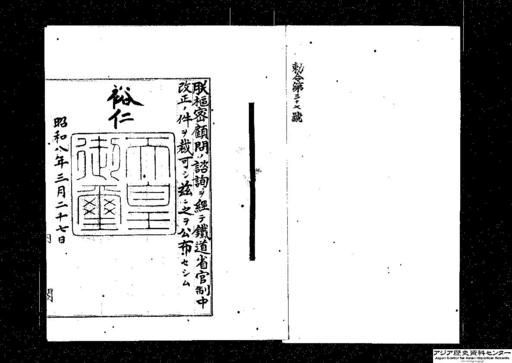 勅令第三十七號
朕樞密顧問ノ諮詢ヲ經テ鐵道省官制中
改正ノ件ヲ裁可シ茲ニ之ヲ公布セシム
裕仁
天皇御璽
昭和八年三月二十七日
内閣
アジア歴史資料センター
Japan Center for Asian Historical Records